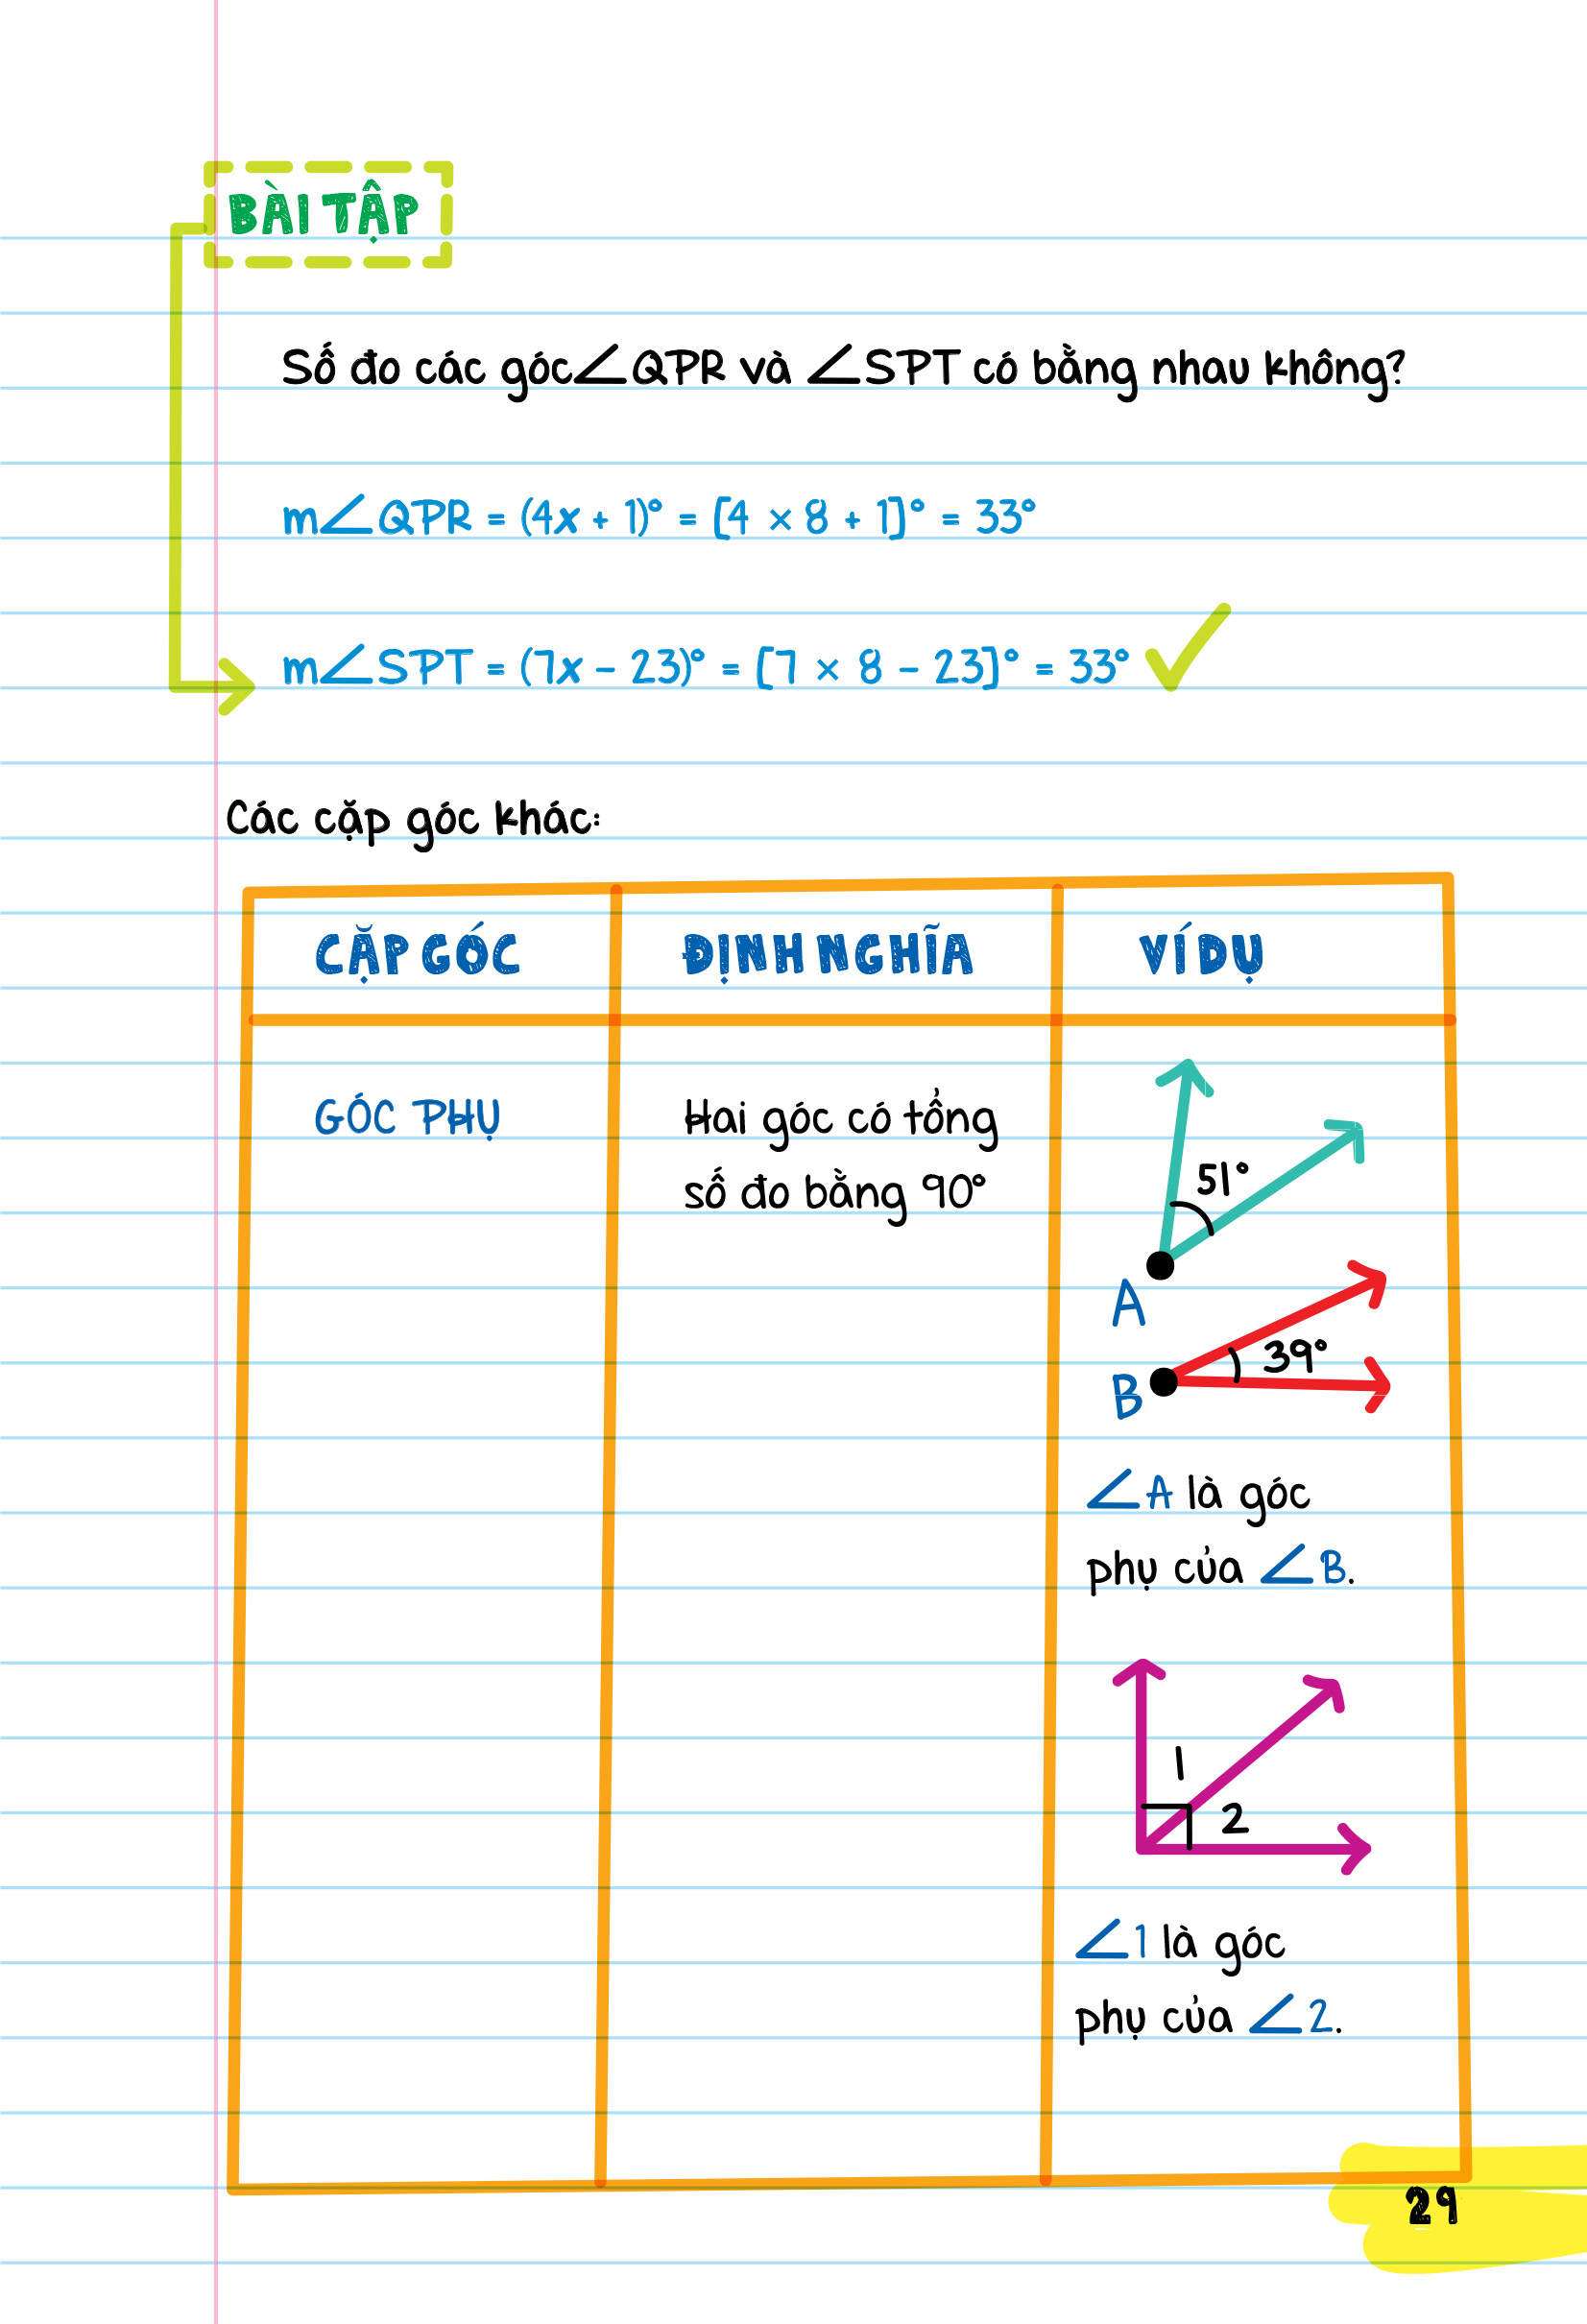 BÀI TẬP
Số đo các góc∠QPR và ∠SPT có bằng nhau không?
m∠QPR = (4x + 1)° = [4 × 8 + 1]° = 33°
m∠SPT = (7x – 23)° = [7 × 8 – 23]° = 33°
Các cặp góc khác:
CẶP GÓC
ĐỊNH NGHĨA
VÍ DỤ
GÓC PHỤ
Hai góc có tổng
số đo bằng 90°
51°
A
39°
B
∠A là góc
phụ của ∠B.
1
2
∠1 là góc
phụ của ∠2.
29